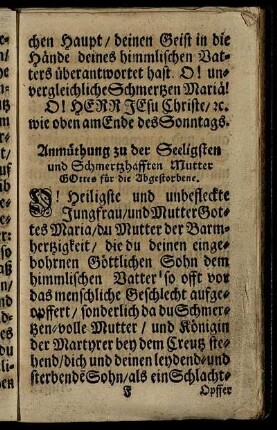 chen Haupt / deinen Geist in die
Hände deines himmlischen Vat-
ters überantwortet hast. O! un-
vergleichliche Schmertzen Mariä!
O! HERR JEsu Christe / ꝛc.
wie oben am Ende des Sonntags.
Anmüthung zu der Seeligsten
und Schmertzhafften Mutter
GOttes für die Abgestorbene.
O! Heiligste und unbefleckte
Jungfrau / und Mutter Got-
tes Maria / du Mutter der Barm-
hertzigkeit / die du deinen einge-
bohrnen Göttlichen Sohn dem
himmlischen Vatter so offt vor
das menschliche Geschlecht aufge-
opffert / sonderlich da du Schmer-
tzen-volle Mutter / und Königin
der Martyrer bey dem Creutz ste-
hend / dich und deinen leydend- und
sterbendē Sohn / als ein Schlacht-
F Opffer